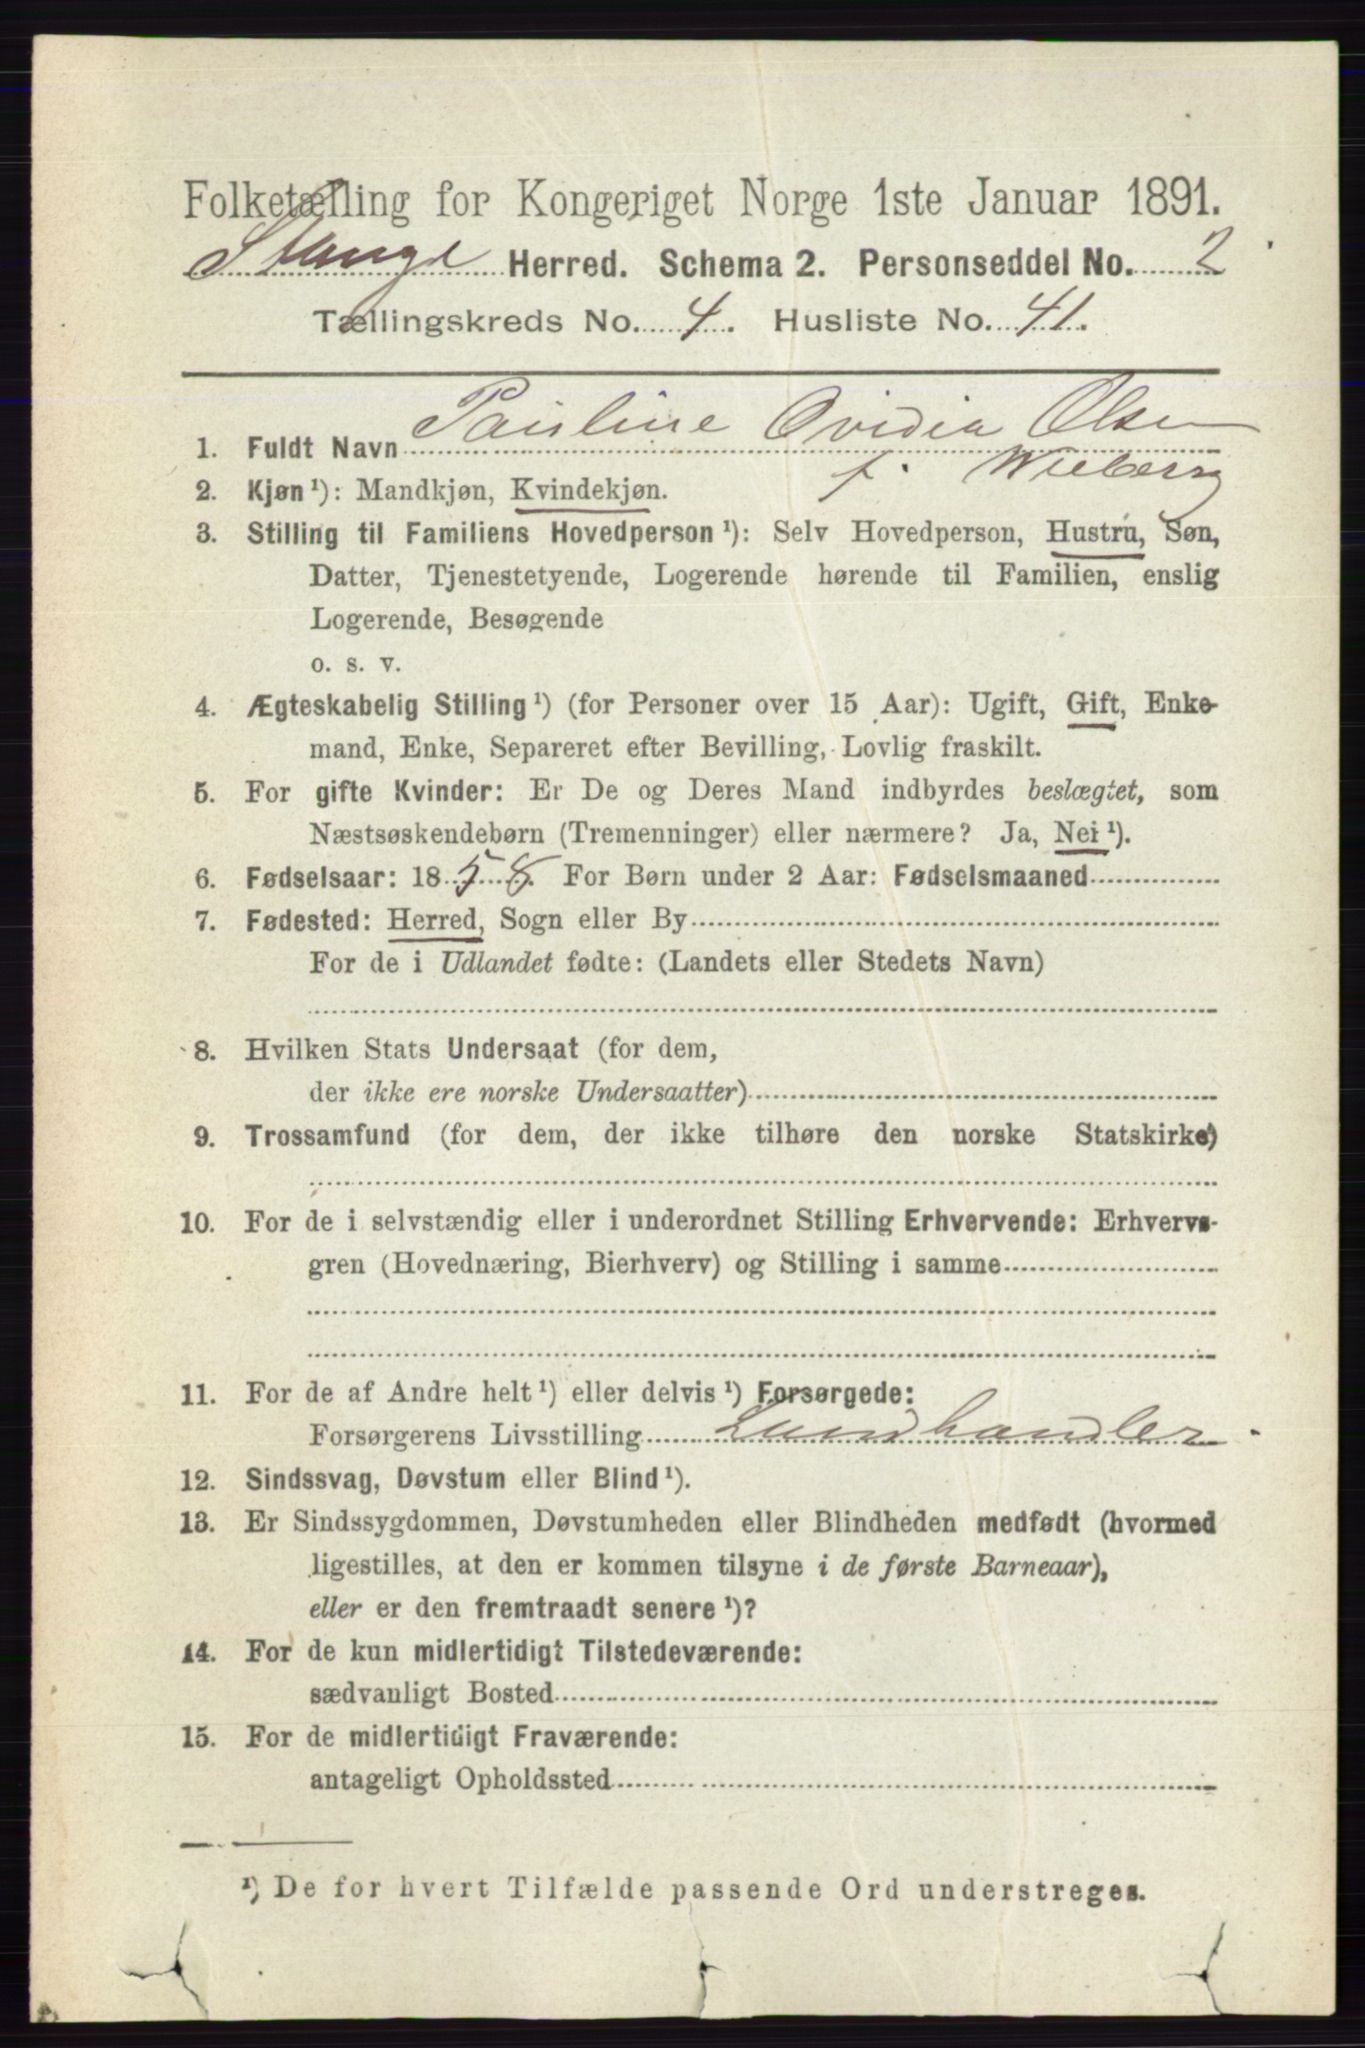 Folketælling for Kongeriget Norge 1ste Januar 1891.
Stange Herred. Schema 2. Personseddel No. 2
Tællingskreds No. 4. Husliste No. 41.
1. Fuldt Navn Pauline Ovidia Olsen
f. Wieberg
2. Kjøn ¹): Mandkjøn, Kvindekjøn.
3. Stilling til Familiens Hovedperson ¹): Selv Hovedperson, Hustru, Søn,
Datter, Tjenestetyende, Logerende hørende til Familien, enslig
Logerende, Besøgende
o. s. v.
4. Ægteskabelig Stilling ¹) (for Personer over 15 Aar): Ugift, Gift, Enke-
mand, Enke, Separeret efter Bevilling, Lovlig fraskilt.
5. For gifte Kvinder: Er De og Deres Mand indbyrdes beslægtet, som
Næstsøskendebørn (Tremenninger) eller nærmere? Ja, Nei ¹).
6. Fødselsaar: 1858. For Børn under 2 Aar: Fødselsmaaned
7. Fødested: Herred, Sogn eller By
For de i Udlandet fødte: (Landets eller Stedets Navn)
8. Hvilken Stats Undersaat (for dem,
der ikke ere norske Undersaatter)
9. Trossamfund (for dem, der ikke tilhøre den norske Statskirke)
10. For de i selvstændig eller i underordnet Stilling Erhvervende: Erhvervs-
gren (Hovednæring, Bierhverv) og Stilling i samme
11. For de af Andre helt ¹) eller delvis ¹) Forsørgede:
Forsørgerens Livsstilling Landhandler
12. Sindssvag, Døvstum eller Blind ¹).
13. Er Sindssygdommen, Døvstumheden eller Blindheden medfødt (hvormed
ligestilles, at den er kommen tilsyne i de første Barneaar),
eller er den fremtraadt senere ¹)?
14. For de kun midlertidigt Tilstedeværende:
sædvanligt Bosted
15. For de midlertidigt Fraværende:
antageligt Opholdssted
¹) De for hvert Tilfælde passende Ord understreges.